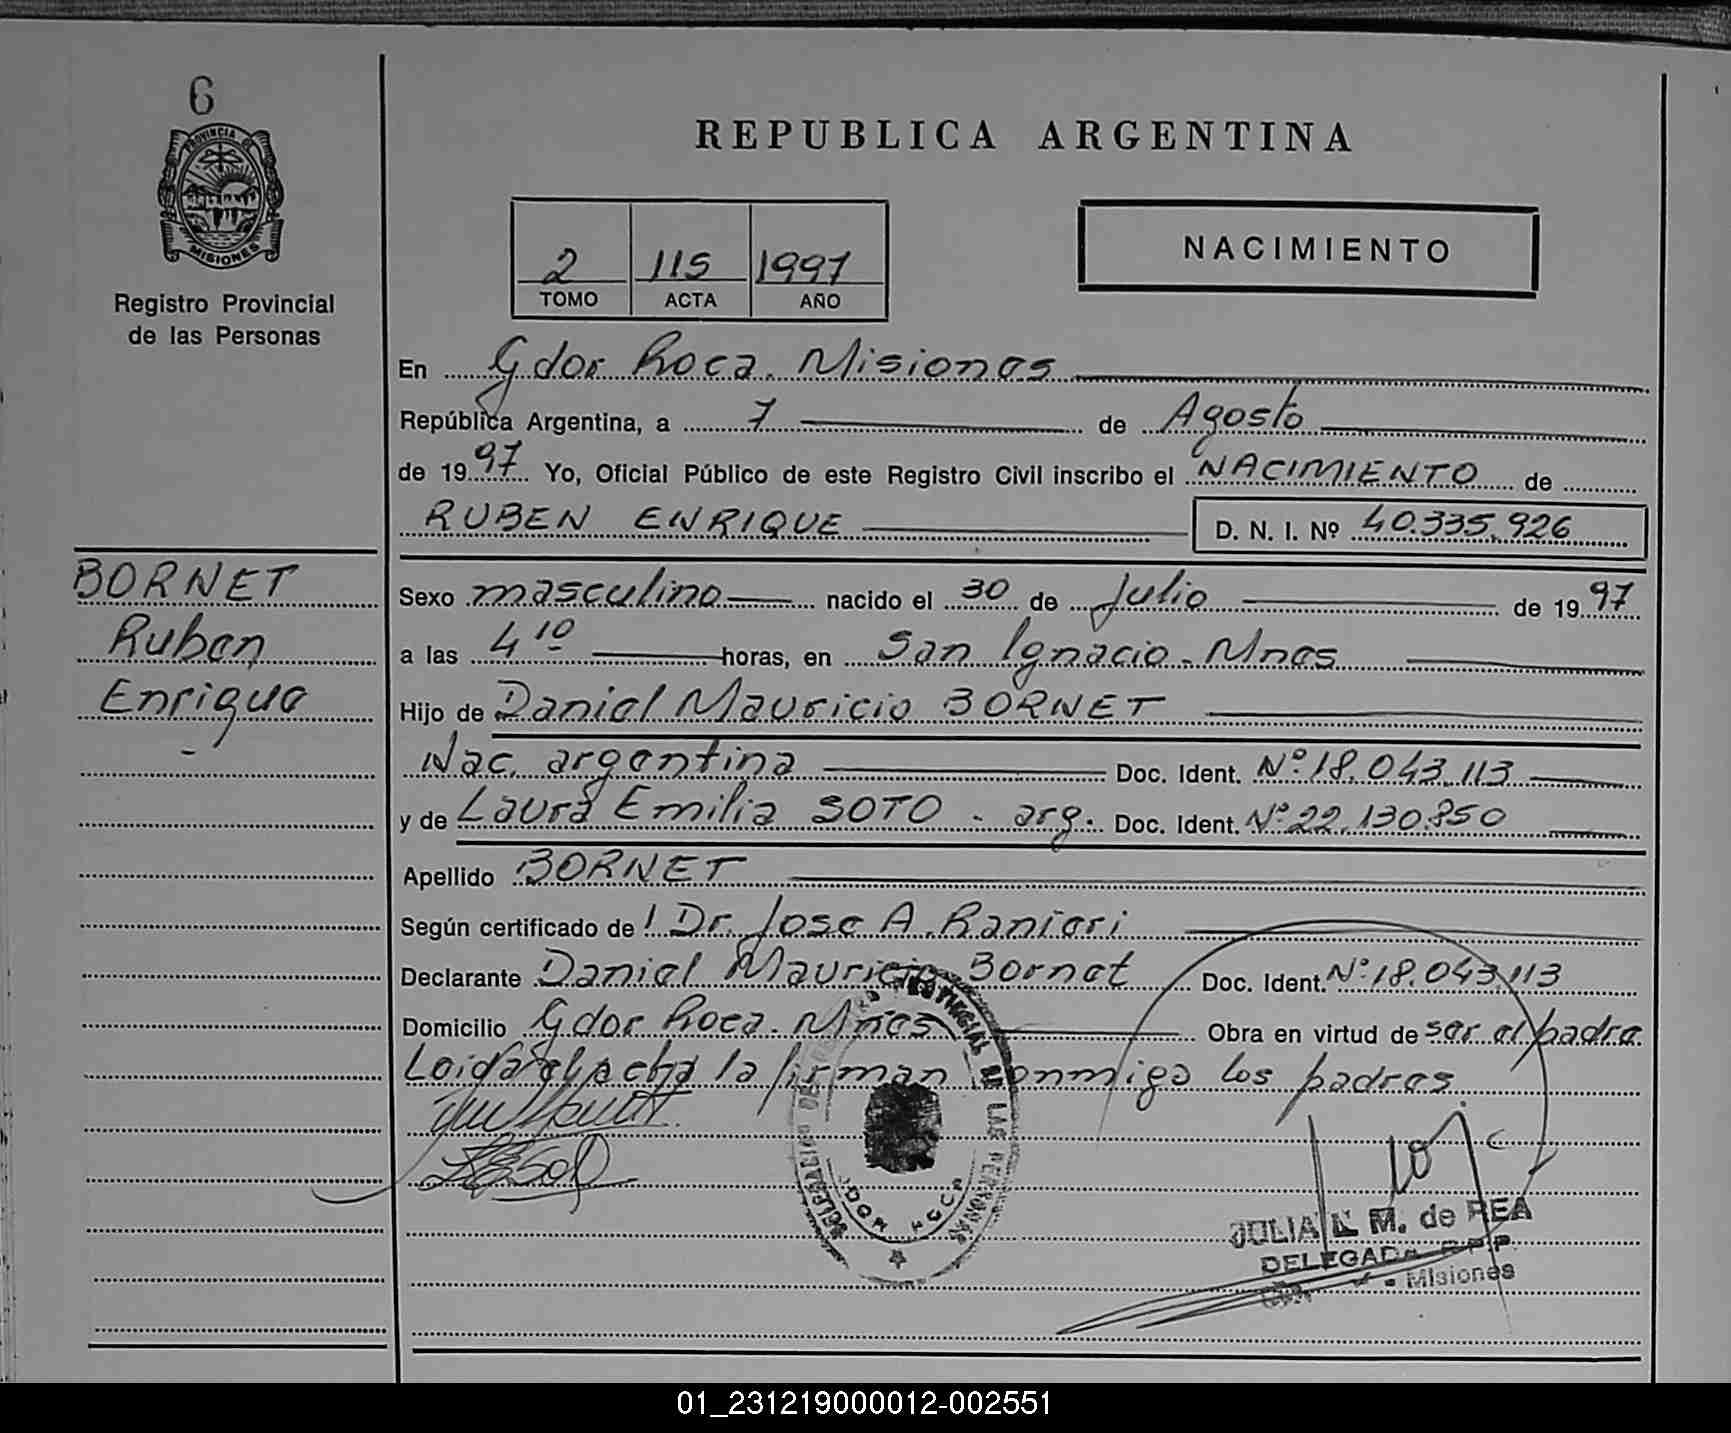 6
PROVINCIA DE
MISIONES
Registro Provincial
de las Personas
BORNET
Ruben
Enrique
-
REPUBLICA ARGENTINA
2 115 1997
TOMO ACTA AÑO
NACIMIENTO
En Gdor Roca. Misiones
República Argentina, a 7 de Agosto
de 1997 Yo, Oficial Público de este Registro Civil inscribo el NACIMIENTO de
RUBEN ENRIQUE D. N. I. Nº 40.335.926
Sexo masculino nacido el 30 de Julio de 1997
a las 4 10 horas, en San Ignacio. Mnes
Hijo de Daniel Mauricio BORNET
Nac. argentina Doc. Ident. Nº 18.043.113
y de Laura Emilia SOTO - arg. Doc. Ident. Nº 22.130.850
Apellido BORNET
Según certificado de l Dr. Jose A. Ranieri
Declarante Daniel Mauricio Bornet Doc. Ident. Nº 18.043.113
Domicilio Gdor Roca. Mnes Obra en virtud de ser el padre.
Leida el acta la firman conmigo los padres.
DE LAS PERSONAS
JULIA L. M. de REA
DELEGADA R.P.P.
- Misiones
01_231219000012-002551